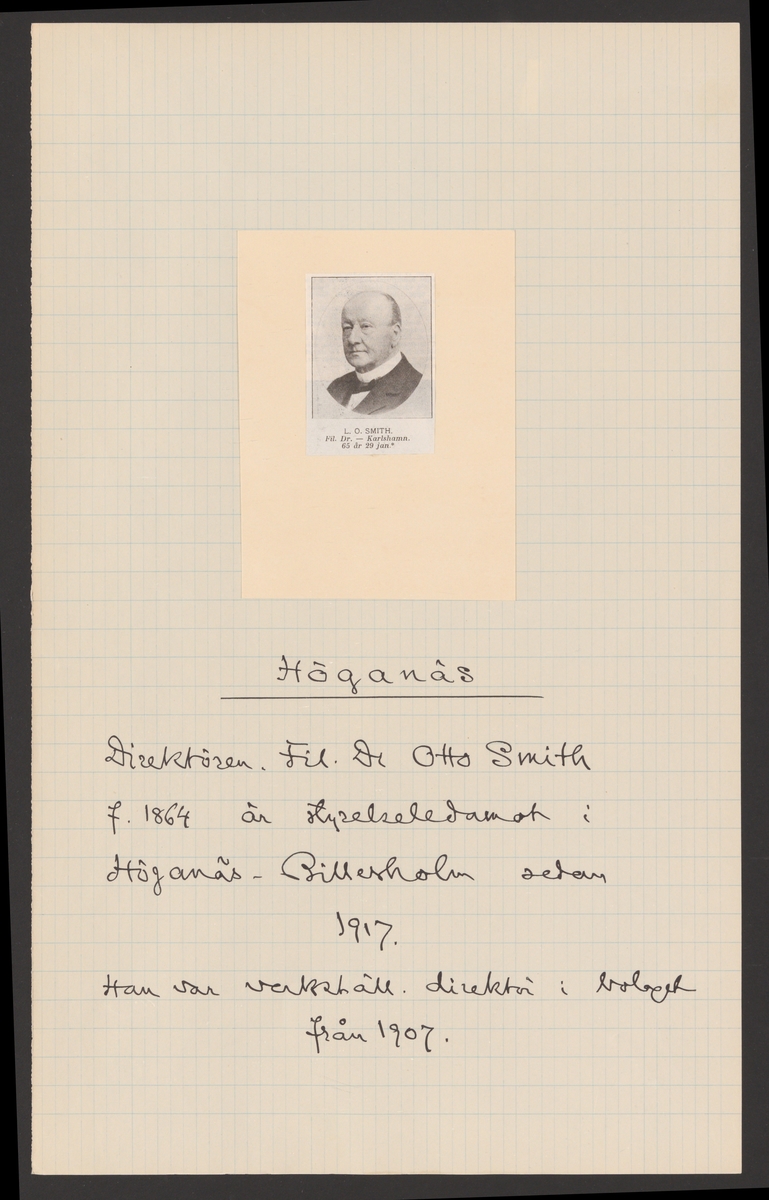 L. O. SMITH.
Fil. Dr. — Karlshamn.
65 år 29 jan.*
Höganäs
Direktören. Fil. Dr Otto Smith
f. 1864 är styrelseledamot i
Höganäs - Billesholm sedan
1917.
Han var verkställ. direktör i bolaget
från 1907.